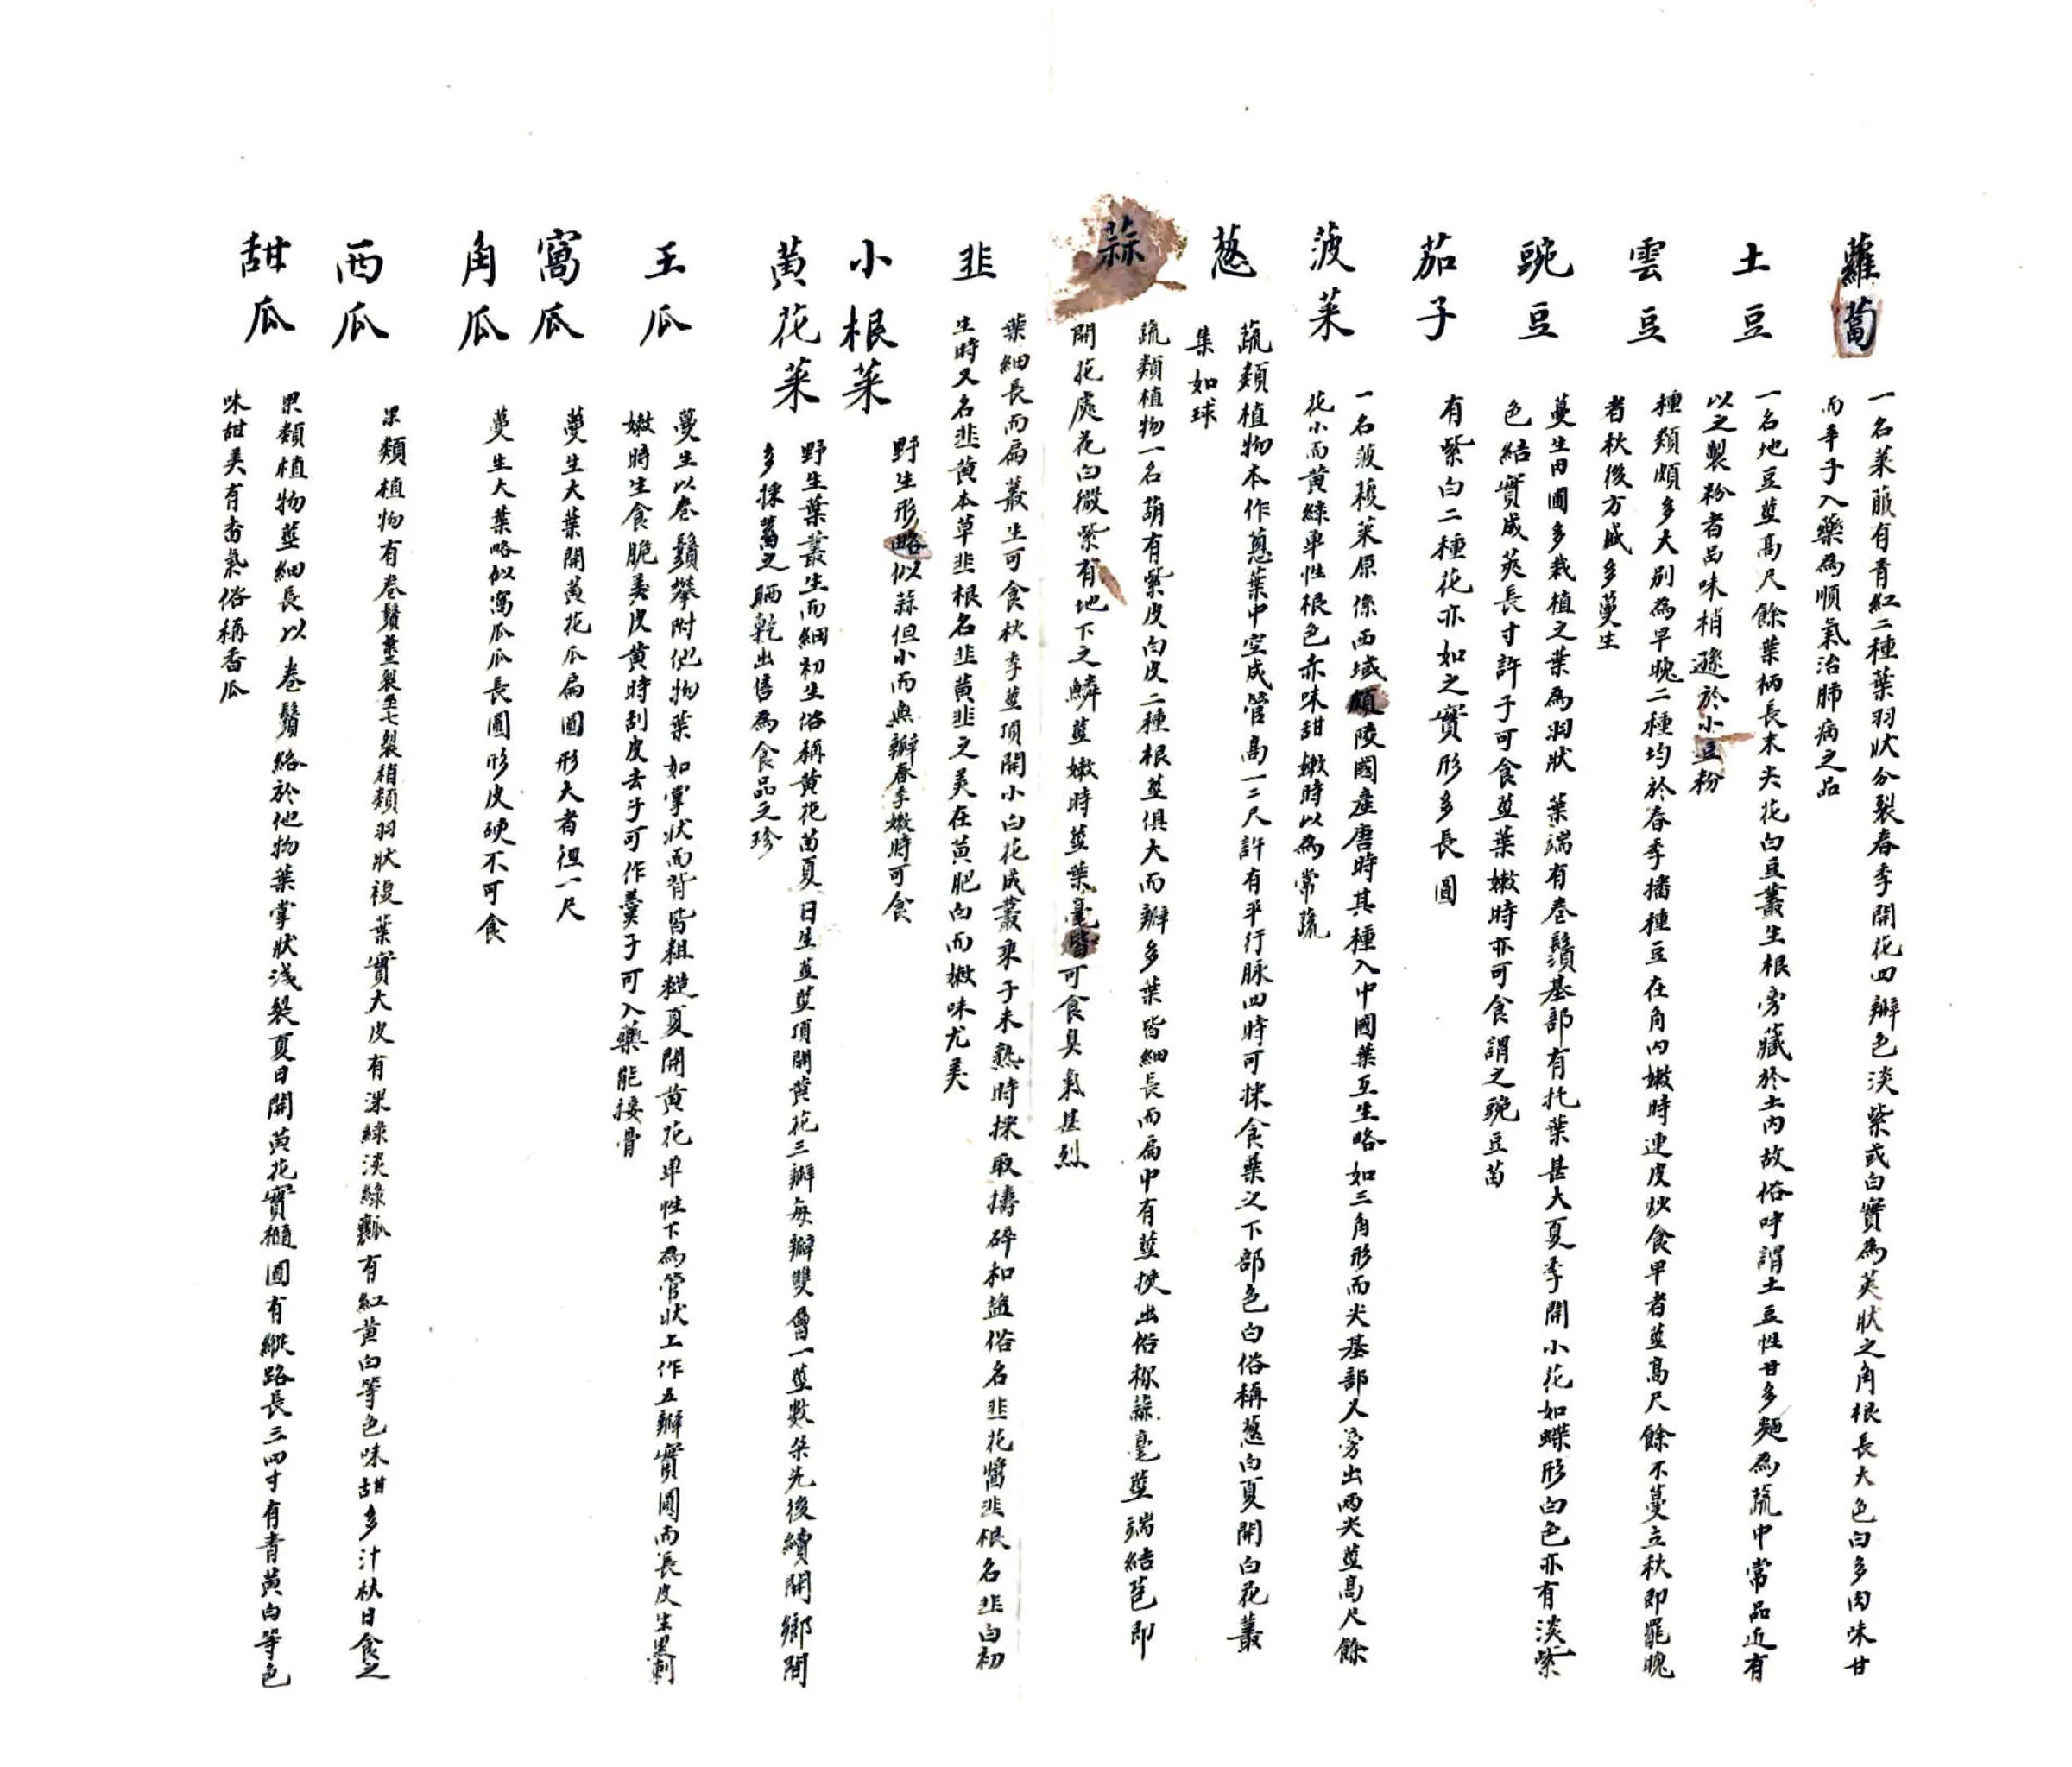 蘿蔔
一名萊菔有青紅二種葉羽狀分裂春季開花四瓣色淡紫或白實為莢狀之角根長大色白多肉味甘
而辛子入藥為順氣治肺病之品
土豆
一名地豆莖高尺餘葉柄長末尖花白豆叢生根旁藏於土內故俗呼謂土豆性甘多麵為蔬中常品近有
以之製粉者品味稍遜於小豆粉
雲豆
種類頗多大別為早晚二種均於春季播種豆在角內嫩時連皮炒食早者莖高尺餘不蔓立秋即罷晚
者秋後方盛多蔓生
豌豆
蔓生田圃多栽植之葉為羽狀葉端有卷鬚基部有托葉甚大夏季開小花如蝶形白色亦有淡紫
色結實成莢長寸許子可食莖葉嫩時亦可食謂之豌豆苗
茄子
有紫白二種花亦如之實形多長圓
菠菜
一名菠薐菜原係西域頗陵國產唐時其種入中國葉互生略如三角形而尖基部又旁出兩尖莖高尺餘
花小而黃綠單性根色赤味甜嫩時以為常蔬
葱
蔬類植物本作蔥葉中空成管高一二尺許有平行脉四時可採食葉之下部色白俗稱葱白夏開白花叢
集如球
蒜
蔬類植物一名葫有紫皮白皮二種根莖俱大而瓣多葉皆細長而扁中有莖挾出俗称蒜毫莖端結苞即
開花處花白微紫有地下之鱗莖嫩時莖葉毫皆可食臭氣甚烈
韭
葉細長而扁叢生可食秋季莖頂開小白花成叢來子未熟時採取擣碎和盐俗名韭花醬韭根名韭白初
生時又名韭黄本草韭根名韭黄韭之美在黄肥白而嫩味尤美
小根菜
野生形略似蒜但小而無瓣春季嫩時可食
黃花菜
野生葉叢生而細初生俗稱黄花苗夏日生莖莖頂開黄花三瓣每瓣雙層一莖數朵先後續開鄉間
多採蓄之晒乾出售為食品之珍
王瓜
蔓生以卷鬚攀附他物葉如掌狀而背皆粗糙夏開黄花单性下為管狀上作五瓣實圓而長皮生黑刺
嫩時生食脆美皮黄時刮皮去子可作羹子可入藥能接骨
窩瓜
蔓生大葉開黄花瓜扁圓形大者徑一尺
角瓜
蔓生大葉略似窩瓜瓜長圓形皮硬不可食
西瓜
果類植物有卷鬚葉三裂至七裂稍類羽狀複葉實大皮有深綠淡綠瓤有紅黄白等色味甜多汁秋日食之
甜瓜
果類植物莖細長以卷鬚絡於他物葉掌狀浅裂夏日開黄花實橢圓有縱路長三四寸有青黄白等色
味甜美有香氣俗稱香瓜